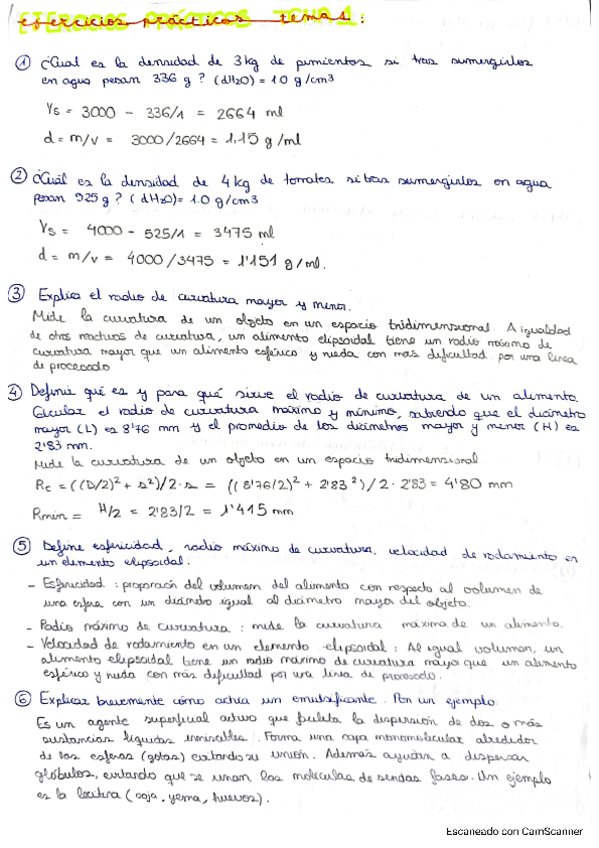 EJERCICIOS PRÁCTICOS TEMA 1:
① ¿Cual es la densidad de 3kg de pimientos si tras sumergirlos
en agua pesan 336 g? (dH2O)= 1.0 g/cm3
Vs = 3000 - 336/1 = 2664 ml
d = m/v = 3000/2664 = 1,15 g/ml
② ¿Cuál es la densidad de 4kg de tomates si tras sumergirlos en agua
pesan 525g? (dH2O)= 1.0 g/cm3
Vs = 4000 - 525/1 = 3475 ml
d = m/v = 4000/3475 = 1'151 g/ml.
③ Explica el radio de curvatura mayor y menor.
Mide la curvatura de un objeto en un espacio tridimensional. A igualdad
de otros motivos de curvatura, un alimento elipsoidal tiene un radio máximo de
curvatura mayor que un alimento esférico y rueda con más dificultad por una línea
de procesado
④ Definir qué es y para qué sirve el radio de curvatura de un alimento.
Calcular el radio de curvatura máximo y mínimo, sabiendo que el diámetro
mayor (L) es 8'76 mm y el promedio de los diámetros mayor y menor (H) es
2'83 mm.
Mide la curvatura de un objeto en un espacio tridimensional
Rc = ((D/2)² + s²)/2·s = ((8'76/2)² + 2'83²)/2·2'83 = 4'80 mm
Rmin = H/2 = 2'83/2 = 1'415 mm
⑤ Define esfericidad, radio máximo de curvatura, velocidad de rodamiento en
un elemento elipsoidal.
- Esfericidad: proporción del volumen del alimento con respecto al volumen de
una esfera con un diámetro igual al diámetro mayor del objeto.
- Radio máximo de curvatura: mide la curvatura máxima de un alimento.
- Velocidad de rodamiento en un elemento elipsoidal: Al igual volumen, un
alimento elipsoidal tiene un radio máximo de curvatura mayor que un alimento
esférico y rueda con más dificultad por una línea de procesado.
⑥ Explicar brevemente cómo actúa un emulsificante. Pon un ejemplo
Es un agente superficial activo que facilita la dispersión de dos o más
sustancias líquidas inmiscibles. Forma una capa monomolecular alrededor
de las esferas (gotas) evitando su unión. Además ayudan a dispersar
glóbulos, evitando que se unan las moléculas de sendas fases. Un ejemplo
es la lecitina (soja, yema, huevos).
Escaneado con CamScanner